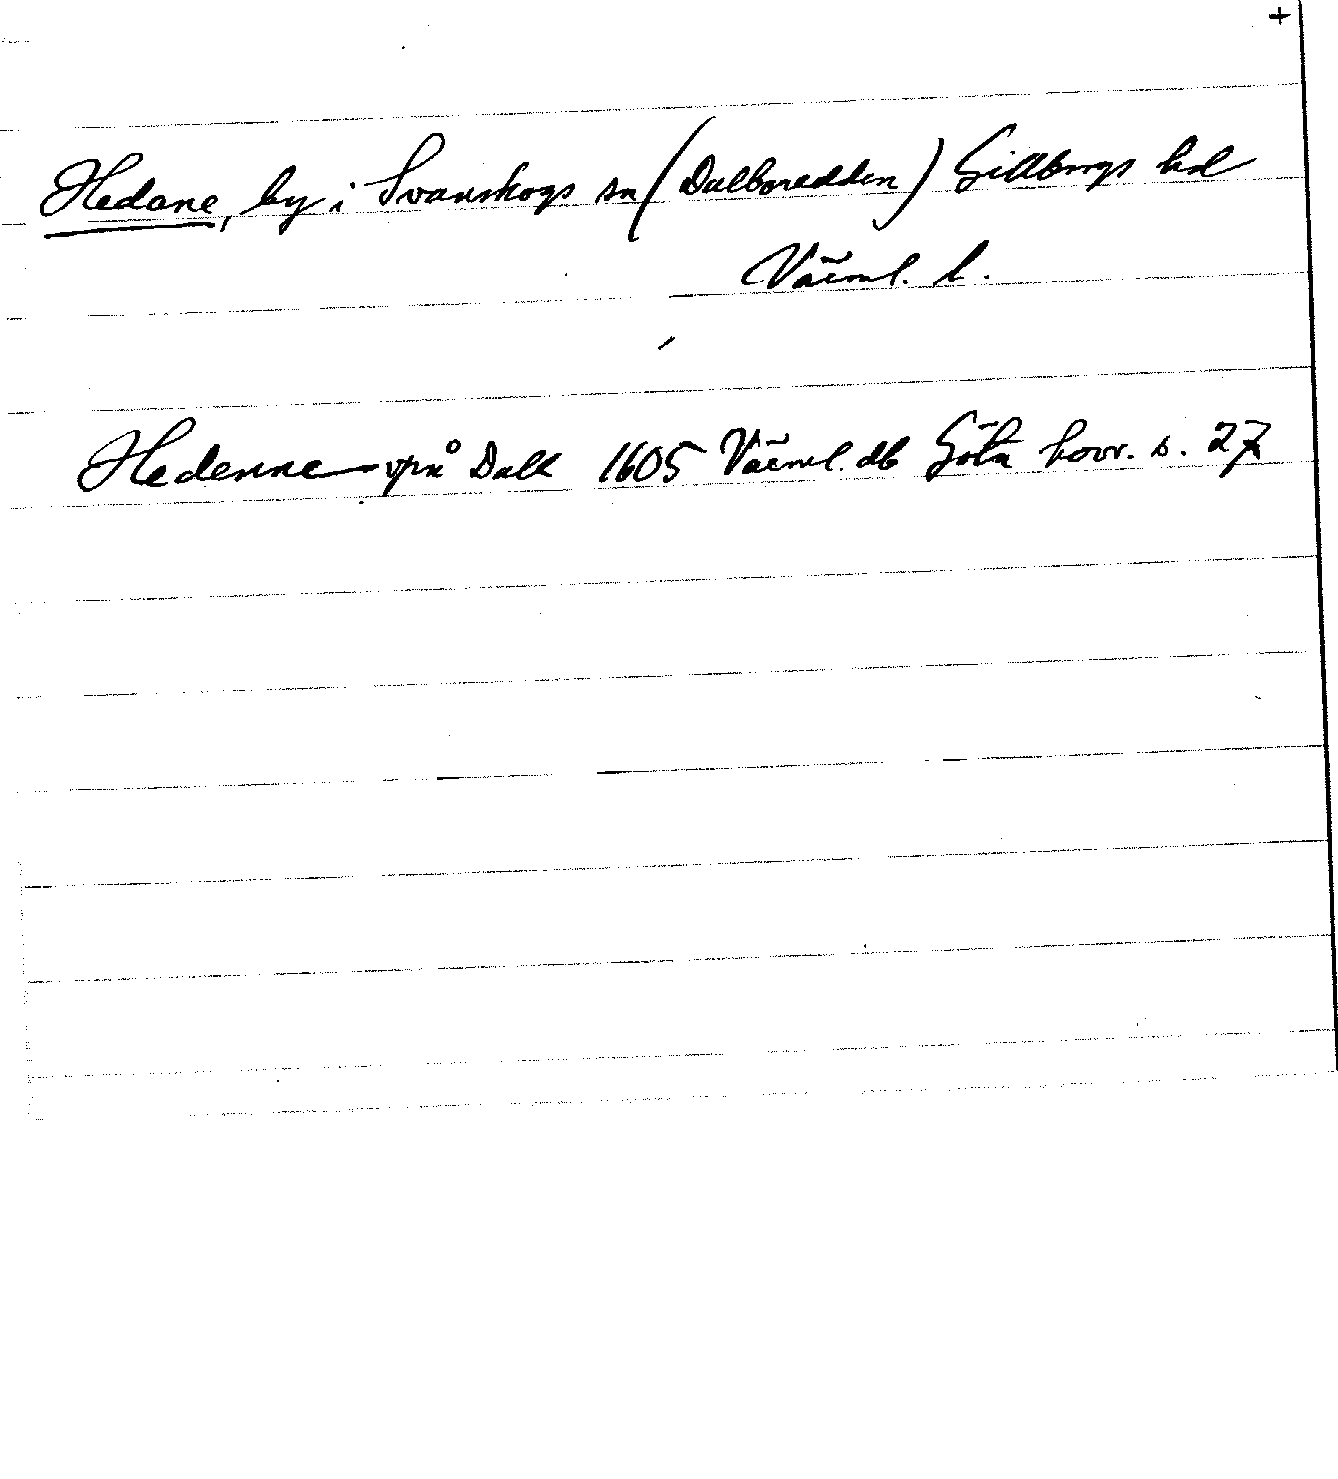 +
Hedane, by i Svanskogs sn (Dalboredden) Gillbergs hd
Värml. l.
Hedenne vpå Dall 1605 Värml. db Göta hovr. s. 27